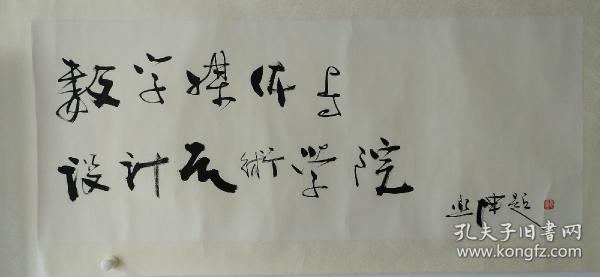 数字媒体与
设计艺術学院
题
孔夫子旧书网
www.kongfz.com